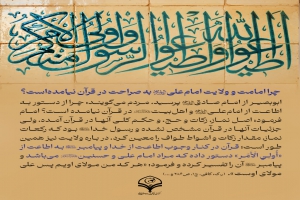 اطیعوا الله و اطیعوا الرسول و اولی الامر منکم
چرا امامت و ولایت امام علی به صراحت در قرآن نیامده‌است؟
ابوبصیر از امام صادق پرسید، مردم می‌گویند، چرا از دستور به
اطاعت از امام علی و اهل‌بیت در قرآن نیامده است؟ امام
فرمود، اصل نماز زکات و حج، و حکم کلی آنها در قرآن آمده، ولی
جزئیات آنها در قرآن مشخص نشده و رسول خدا بود که رکعات
نماز، مقدار زکات و اشواط طواف را معین کرد. در باره ولایت نیز همین
طور است؛ قرآن در کنار وجوب اطاعت از خدا و پیامبر به اطاعت از
«أولی الأمر» دستور داده که مراد امام علی و حسنین می‌باشد و
پیامبر آن را تفسیر کرده و فرموده: «هر که من مولای اویم پس علی
مولای اوست»